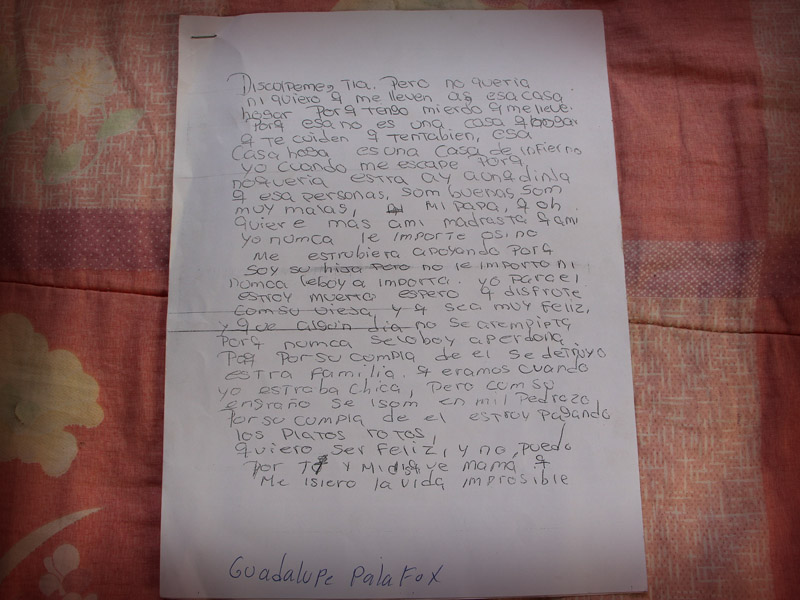 Discolpeme, Tia. Pero no queria
ni quiero q me lleven as esa casa
hogar porq tengo mierdo q me lleve.
porq esa no es una casa q hogar
q te cuiden q tentabien, esa
casa hoga es una casa de infierno
yo cuando me escape porq
noqueria estra ay aunq dinla
q esa personas, som buenas, som
muy malas, mi papa, q oh
quiere mas ami madrasta q ami
yo nunca le importe osino
me estrubiera apoyando porq
soy su hija pero no le importo ni
nunca leboy a importa. yo para el
estroy muerta espero q disfrote
comsu viesa, y q sea muy feliz,
y que algun dia no se arempipta
porq nunca seloboy aperdona.
Poq por su cumpla de el se detruyo
estra familia. q eramos cuando
yo estroba chica, pero comsu
engraño se isom en mil pedrazo
por su cumpla de el estroy pagando
los platos rotos,
quiero ser feliz, y no, puedo
por y Midisque mama q
Me isiero la vida improsible
Guadalupe Palafox